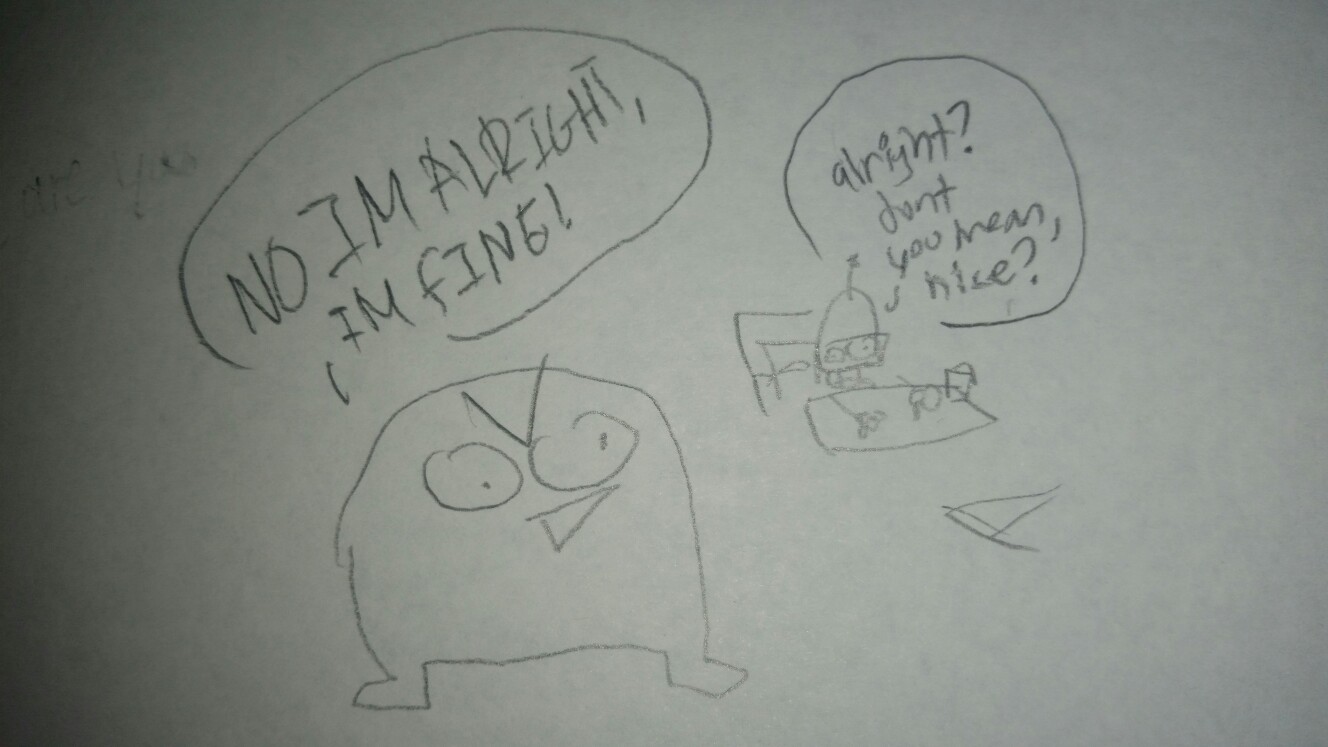 are you
NO IM ALRIGHT,
IM FINE!
alright?
dont
you mean,
nise?